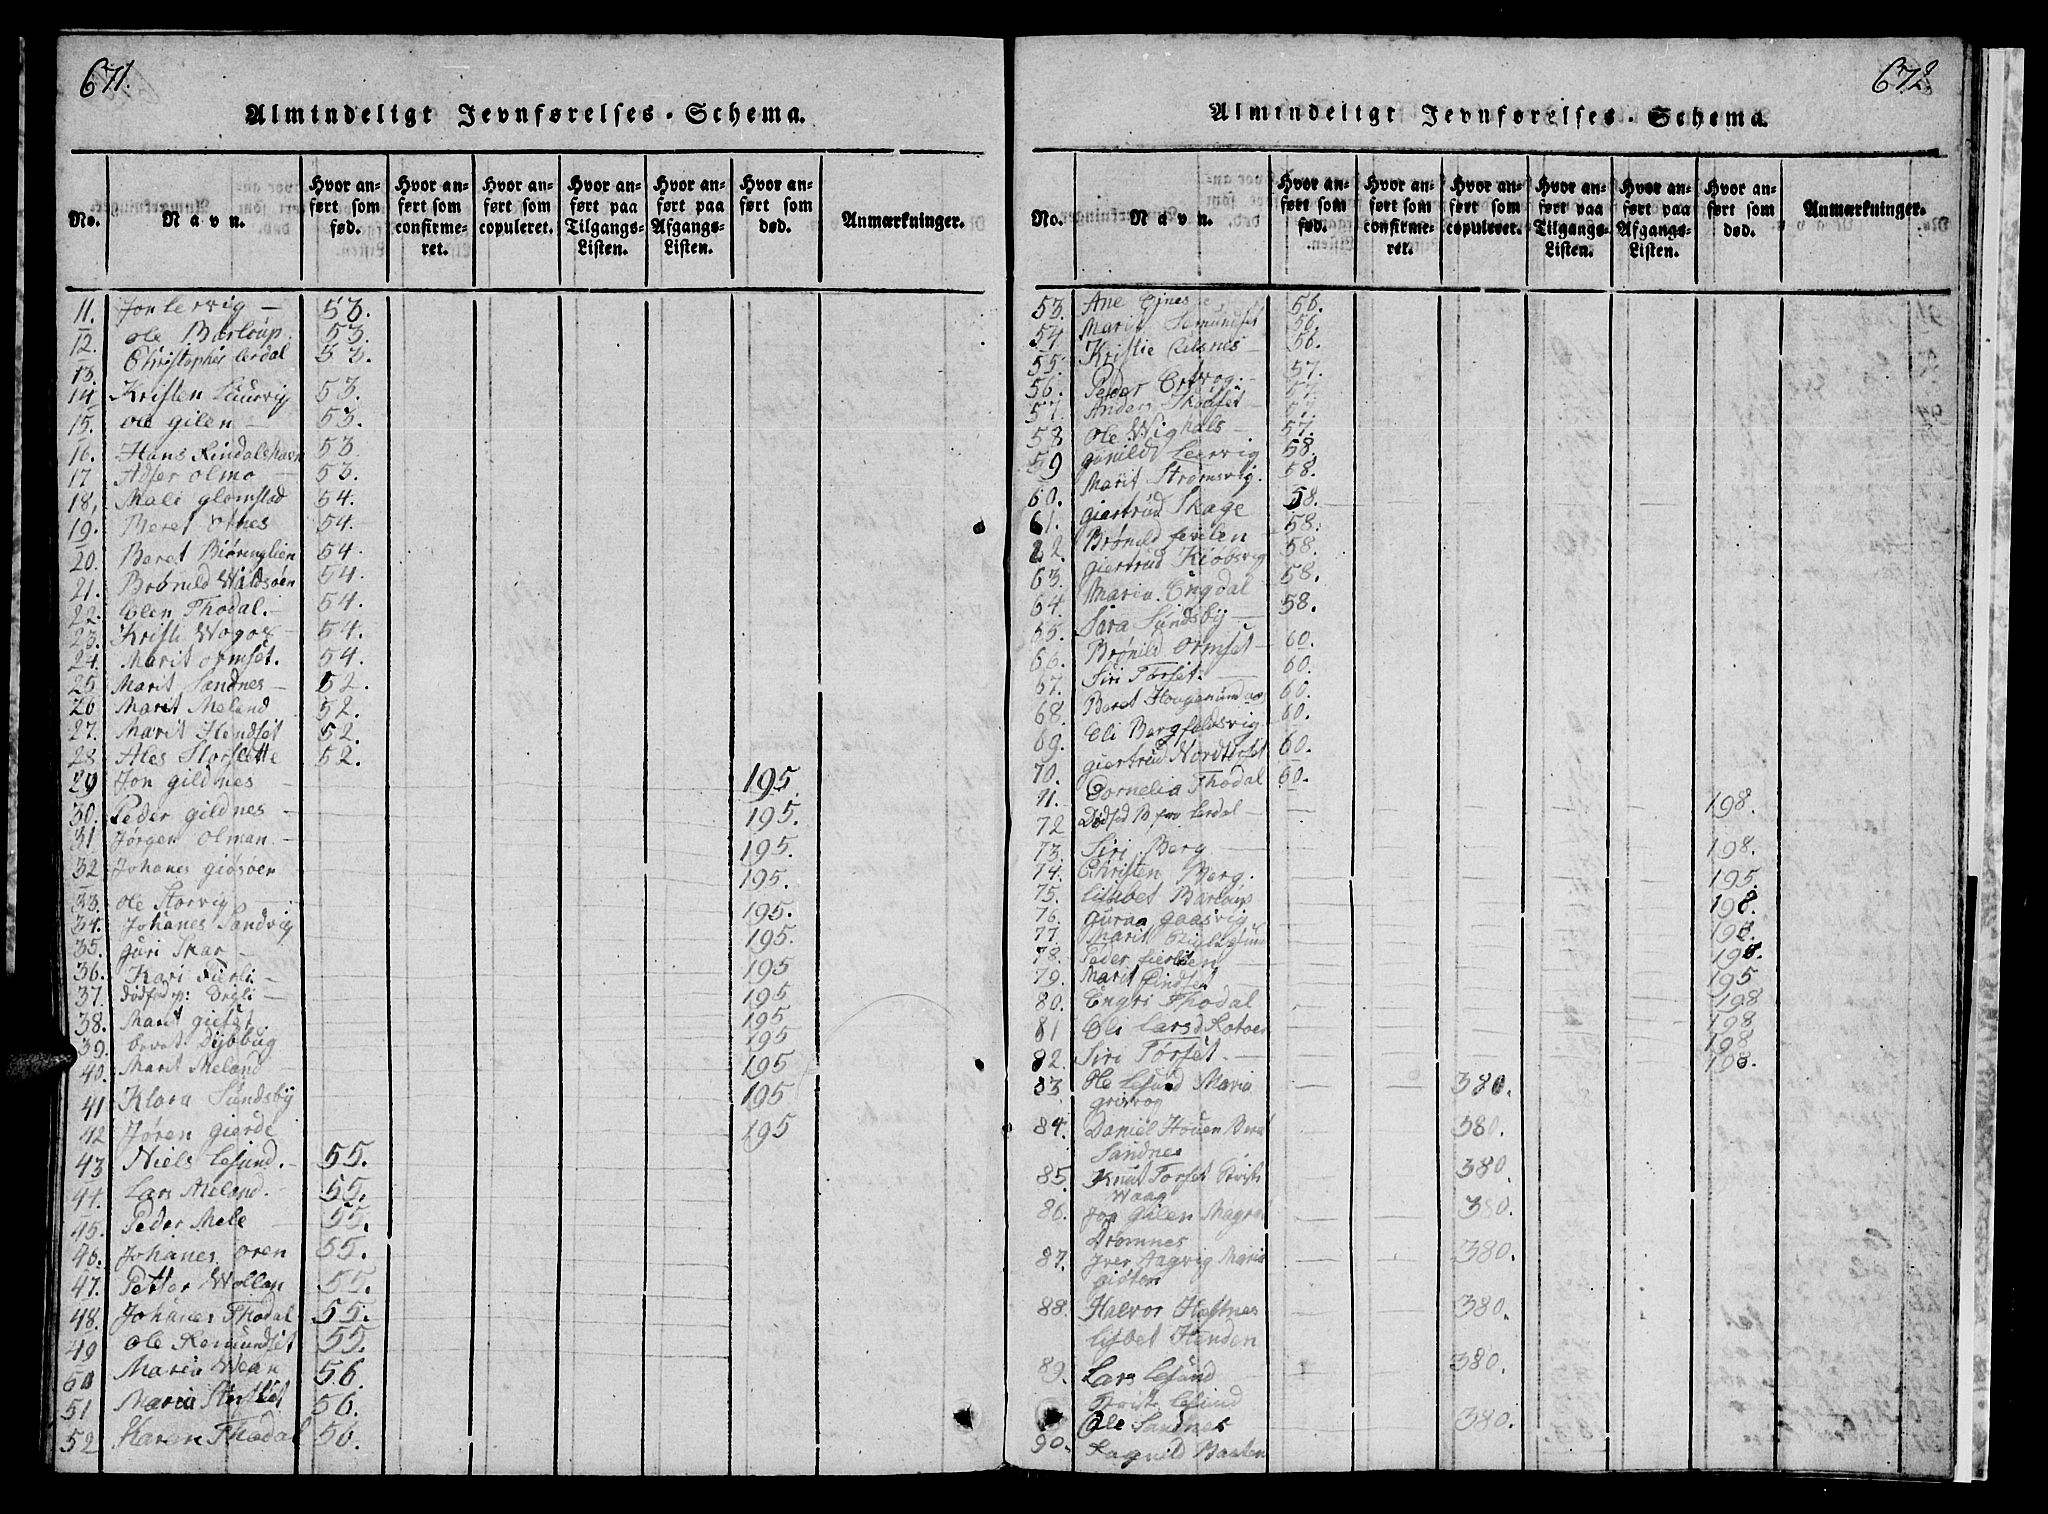 671.
Almindeligt Jevnførelses-Schema.
No. Navn. Hvor anført som fød. Hvor anført som confirmeret. Hvor anført som copuleret. Hvor anført paa Tilgangs-Listen. Hvor anført paa Afgangs-Listen. Hvor anført som død. Anmærkninger.
11. Jon Lervig — 53.
12. Ole Bartoup. 53.
13. Christopher Lerdal 53.
14 Kristen Luurvig 53.
15. Ole gilen — 53.
16. Hans Rindalshavn 53
17 Adser Olmo — 53.
18, Mali glomstad 54.
19. Beret Ornes 54.
20. Beret Biøringlien 54.
21. Brønild Widsøen 54.
22. Elen Thodal. — 54.
23. Kristi Wogox — 54.
24. Marit Ormset. 54.
25. Marit Sandnes — 52.
26 Marit Meland 52.
27. Marit Hendset 52.
28 Ales Storslette 52.
29 Jon gildnes — 195.
30. Peder gildnes — 195.
31 Jørgen Olman — 195.
32 Johanes giøsøen 195.
33. Ole Storvig — 195.
34. Johanes Sandvig 195.
35. Guri Skar — 195
36. Kari Fierli — 195
37. dødfød p: Ergli — 195
38. Marit gietøt 195
39. Beret Dybbug 195
40. Marit Meland — 195
41 Klara Sundsby
42 Jøren gierde 195
43 Niels Lesund. — 55.
44. Lars Meland. — 55.
45. Peder Mele — 55.
46. Johanes Oren 55.
47. Petter Wollan 55.
48. Johanes Thodal 55.
49 Ole Romundset 55.
50 Maria Wean 56.
51 Maria 56.
52 Karen Thodal 56.
672.
Almindeligt Jevnførelses-Schema.
No. Navn. Hvor anført som fød. Hvor anført som confirmeret. Hvor anført som copuleret. Hvor anført paa Tilgangs-Listen. Hvor anført paa Afgangs-Listen. Hvor anført som død. Anmærkninger.
53. Ane 56.
54 Marit Semundset 56.
55. Kristie Eilsnes — 56.
56. Peder Ertvog. — 57.
57. Anders Skodset — 57.
58 Ole Wighals — 57.
59 gunild Leervig 58.
60. Marit Strømsvig. 58.
61. giertrud Skage 58.
62. Brønild fevilen — 58.
63. giertrud Kiøbsvig 58.
64. Maria Engdal 58.
65. Sara Sundsby — 58.
66. Brønild Ormset — 60.
67. Siri Torset. — 60.
68. Beret Hougen 60.
69. Eli Bergfaldsvig 60.
70. giertrud Nordtorset 60.
71. Cornelia Thodal 60.
72 Dødfød B fra Lerdal — 198.
73. Siri Berg — 198.
74. Christen Berg. 195.
75. Lisbet Bartoup 198.
76. guraa gaasvig 198.
77. Marit 198.
78. Peder 195
79. Marit Rindset 198
80. Engri Thodal 198
81 Eli Larsd 198
82. Siri Torset. — 198.
83 Ole Lesund Maria 380.
grisvog
84. Daniel Houen Beret 380.
Sandnes
85. Knut Torset Kristi 380.
Waag
86. Jon Gilen Magre 380.
Drømnes
87. Iver Aagvig Maria 380.
giøten
88. Halvor Hestnes 380.
Lisbet Henden
89. Lars Lesund 380.
Kristi Lesund
Ole Sandnes 380.
90. Ragnild Baaten